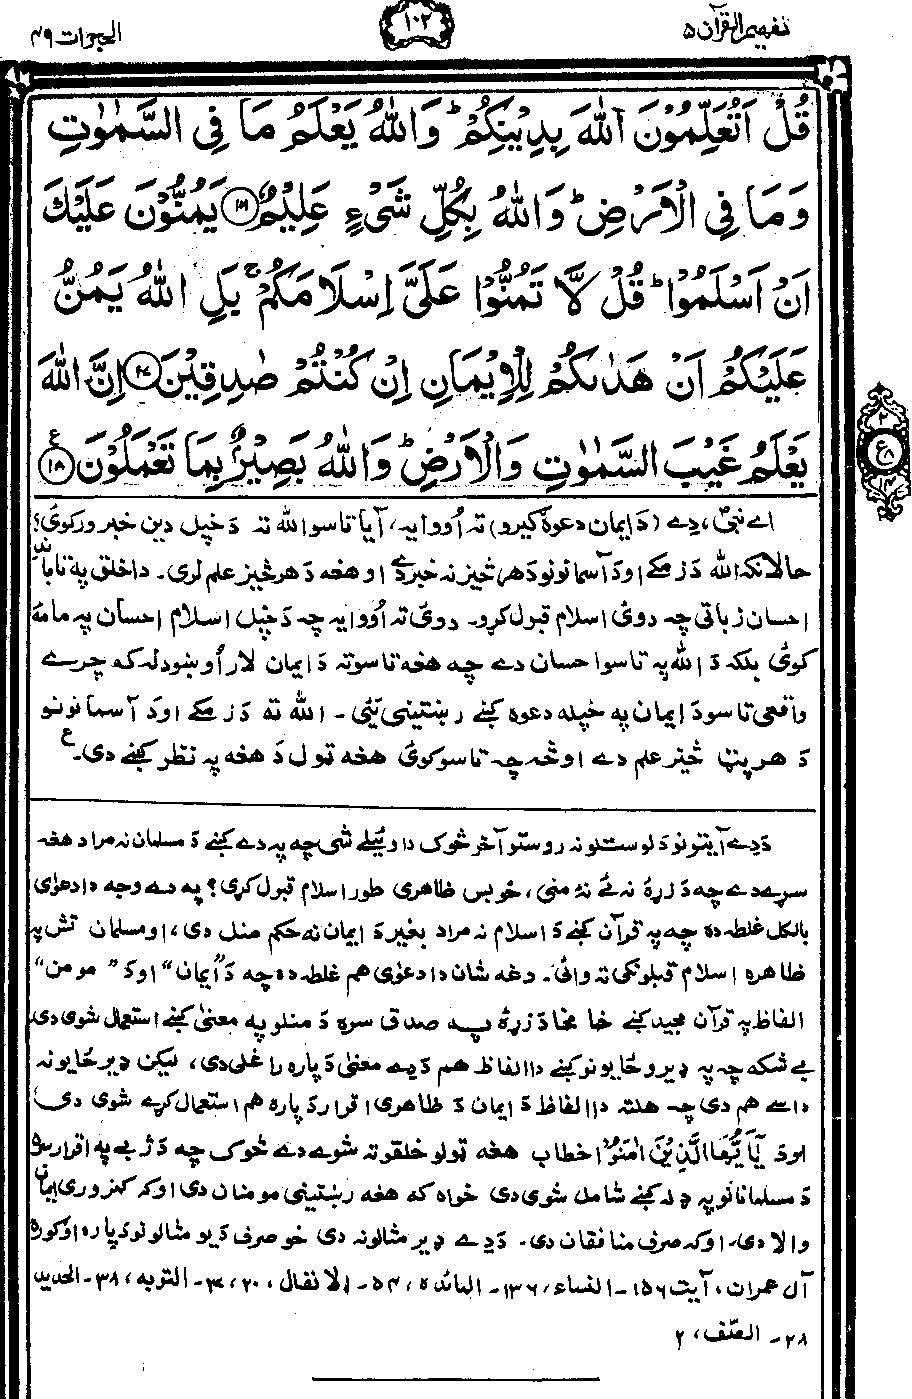 تفهیم القرآن ۵
۱۰۲
الحجرات ۴۹
قُلْ اَتُعَلِّمُوْنَ اللّٰهَ بِدِيْنِكُمْ ؕ وَاللّٰهُ يَعْلَمُ مَا فِي السَّمٰوٰتِ
وَمَا فِي الْاَرْضِ ؕ وَاللّٰهُ بِكُلِّ شَيْءٍ عَلِيْمٌ ۝۱۶ يَمُنُّوْنَ عَلَيْكَ
اَنْ اَسْلَمُوْا ؕ قُلْ لَّا تَمُنُّوْا عَلَيَّ اِسْلَامَكُمْ ۚ بَلِ اللّٰهُ يَمُنُّ
عَلَيْكُمْ اَنْ هَدٰىكُمْ لِلْاِيْمَانِ اِنْ كُنْتُمْ صٰدِقِيْنَ ۝۱۷ اِنَّ اللّٰهَ
يَعْلَمُ غَيْبَ السَّمٰوٰتِ وَالْاَرْضِ ؕ وَاللّٰهُ بَصِيْرٌۢ بِمَا تَعْمَلُوْنَ ۝۱۸ ع
اے نبیؐ، دے (دَ ایمان دعوهٔ کیرو) ته اُووایه، آیا تاسو الله ته دَ خپل دین خبر ورکوئ؟
حالانکه الله دَ زمکے اودَ آسمانونو دَ هر څیز نه خبر دے او هغه دَ هر څیز علم لری۔ دا خلق په تا باندِ
احسان زباتی چه دوئ اسلام قبول کړو۔ دوئ ته اُووایه چه دَ خپل اسلام احسان په ما مهٔ
کوئ بلکه دَ الله په تاسو احسان دے چه هغه تاسوته دَ ایمان لار اُوښودله که چرے
واقعی تاسو دَ ایمان په خپله دعوه کښے رښتینی یئی۔ الله ته دَ زمکے اودَ آسمانونو
دَ هر پټ څیز علم دے او څه چه تاسو کوئ هغه ټول دَ هغه په نظر کښے دی۔ ع
دَدے آیتونو دَ لوستلو نه روستو آخر څوک دا وئیلے شی چه په دے کښے دَ مسلمان نه مراد هغه
سړے دے چه دَ زړهٔ نه ئے نهٔ منی، خو بس ظاهری طور اسلام قبول کړی؟ په دے وجه دا دعوٰی
بالکل غلطه ده چه په قرآن کښے دَ اسلام نه مراد بغیر دَ ایمان نه حکم منل دی، او مسلمان تش په
ظاهره اسلام قبلونکی ته وائی۔ دغه شان دا دعوٰی هم غلطه ده چه دَ "ایمان" اودَ "مومن"
الفاظ په قرآن مجید کښے خا مخا دَ زړهٔ په صدق سره دَ منلو په معنیٰ کښے استعمال شوی دی
بے شکه چه په ډیرو ځایونو کښے دا الفاظ هم دَ دے معنیٰ دَ پاره راغلی دی، لیکن ډیر ځایونه
داسے هم دی چه هلته دا الفاظ دَ ایمان دَ ظاهری اقرار دَ پاره هم استعمال کړے شوی دی
اودَ يٰٓاَيُّهَا الَّذِيْنَ اٰمَنُوْا خطاب هغه ټولو خلقو ته شوے دے څوک چه دَ ژبے په اقرار سره
دَ مسلمانانو په ډله کښے شامل شوی دی خواه که هغه رښتینی مومنان دی اوکه کمزوری ایمان
والا دی، اوکه صرف منافقان دی۔ دَدے ډیر مثالونه دی خو صرف دَ یو مثالونو دَ پاره اوګوره
آل عمران، آیت ۱۵۶۔ النساء، ۱۳۶۔ المائده، ۵۴۔ الانفال، ۲۰، ۲۷۔ التوبه، ۳۸۔ الحدید
۲۸۔ الصّف، ۲